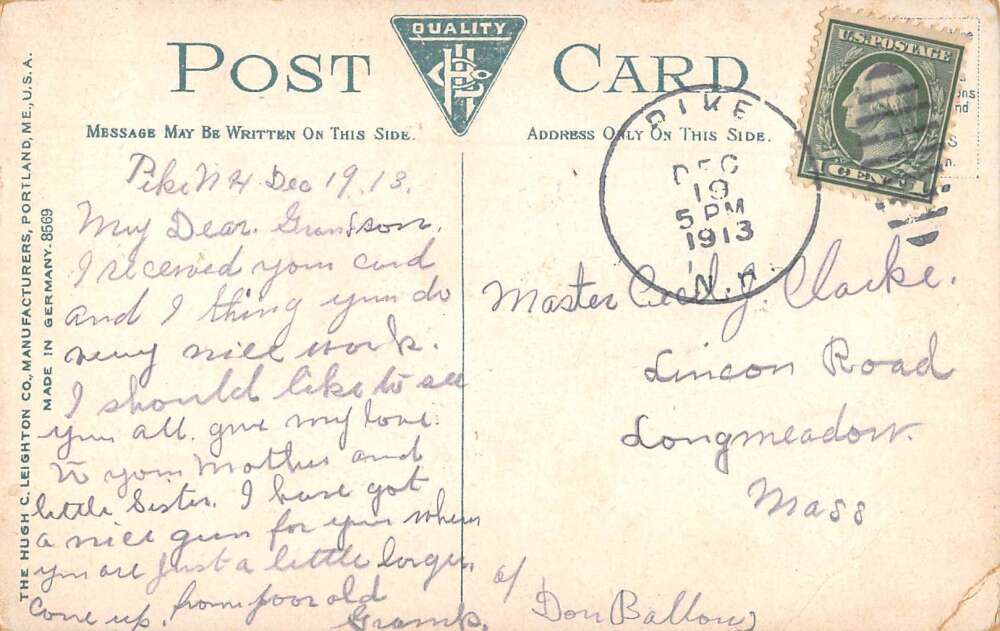 QUALITY
POST CARD
MESSAGE MAY BE WRITTEN ON THIS SIDE.
ADDRESS ONLY ON THIS SIDE.
THE HUGH C. LEIGHTON CO., MANUFACTURERS, PORTLAND, ME., U.S.A.
MADE IN GERMANY. 8569
U.S. POSTAGE
1 CENT 1
PIKE
DEC
19
5 PM
1913
N.H.
Pike N H Dec 19. 13.
My Dear. Grandson.
I received your card
and I thing you do
very nice work.
I should like to see
you all. give my love.
to your Mother and
little Sister. I have got
a nice gun for you when
you are just a little larger
Come up. from poor old
Gramp.
Master Cecil. J. Clarke.
Lincon Road
Longmeadow.
Mass
c/
Don Ballou